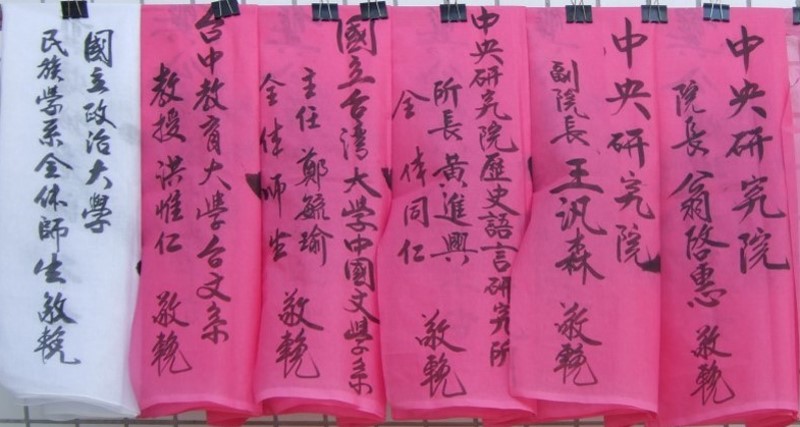 中央研究院
院長 翁啓惠 敬輓
中央研究院
副院長 王汎森 敬輓
中央研究院歷史語言研究所
所長黃進興
全体同仁 敬輓
國立台灣大学中國文学系
主任 鄭毓瑜
全体師生 敬輓
台中教育大学台文系
教授 洪惟仁 敬輓
國立政治大學
民族學系全体師生敬輓